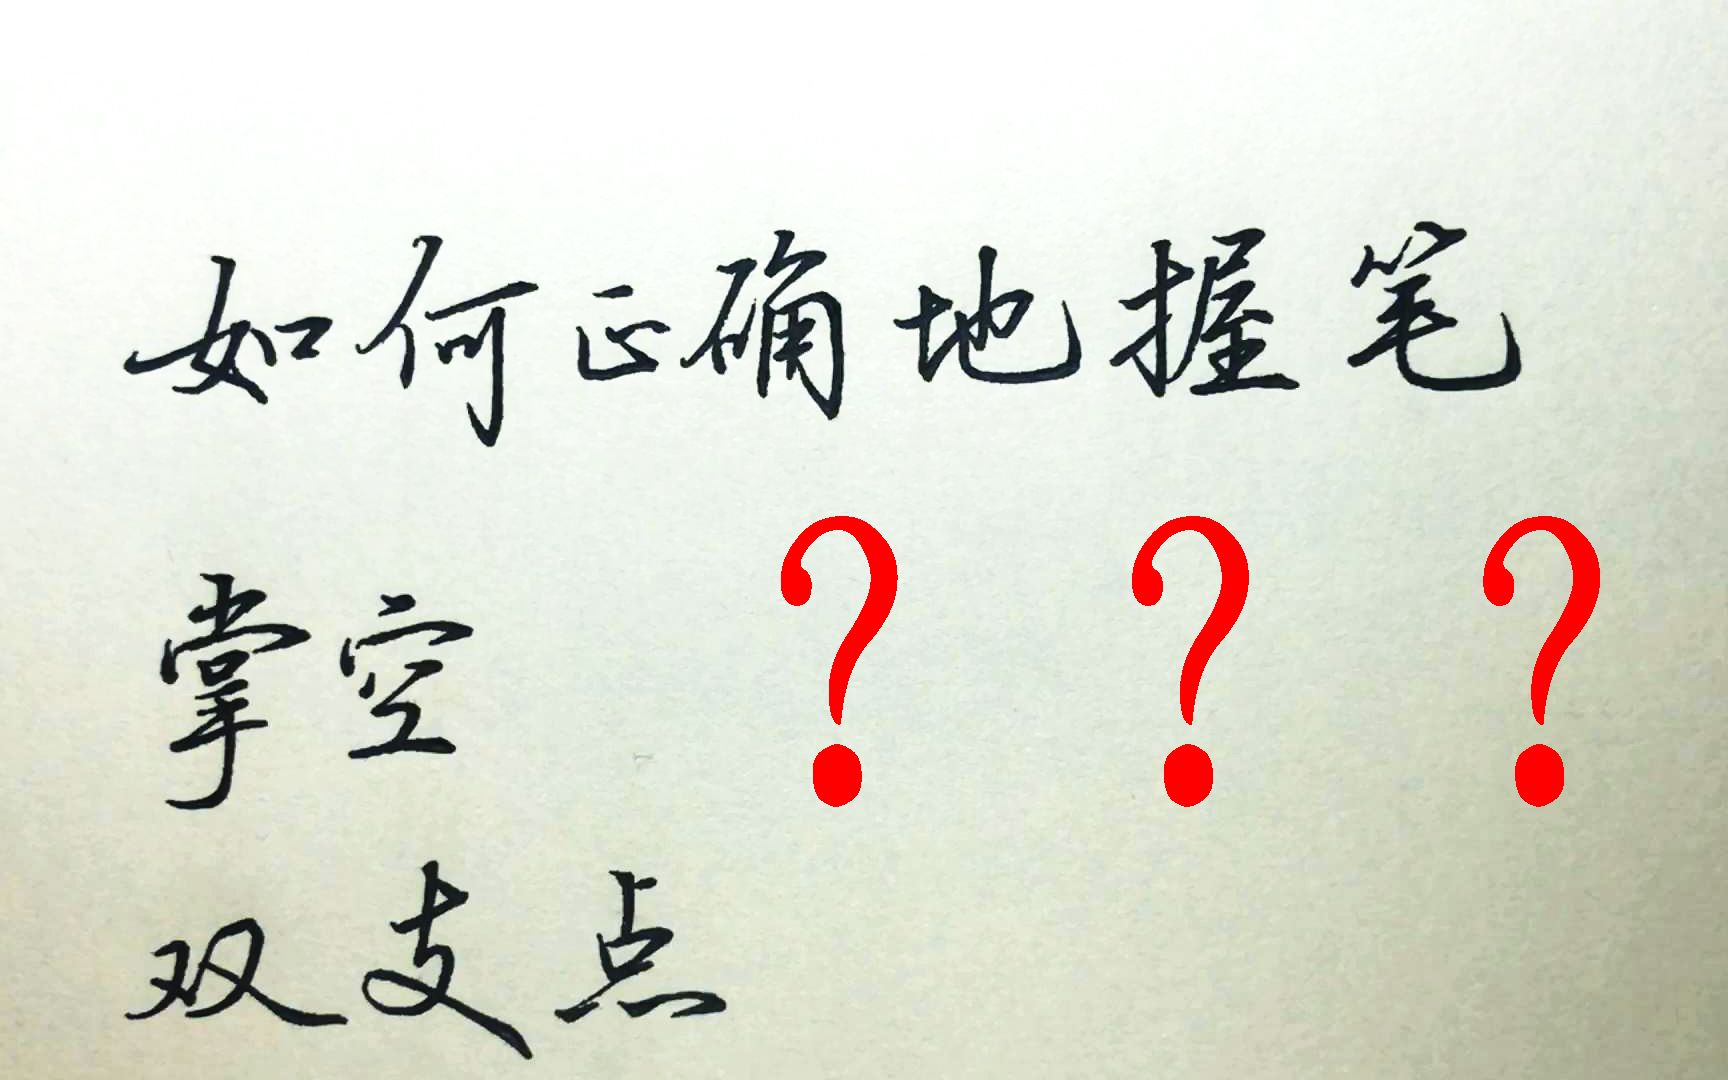 如何正确地握笔
掌空 ? ? ?
双支点